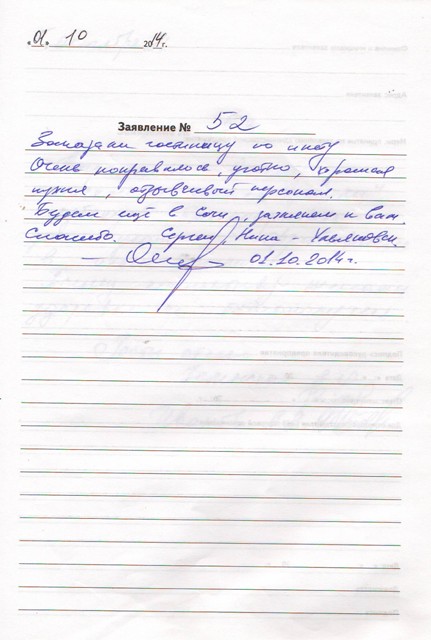 «01» 10 2014г.
Заявление № 52
Заказали гостиницу по инету
Очень понравилось, уютно, хорошая
кухня, отзывчивый персонал.
Будем ещё в Сочи, заглянем к вам.
Спасибо. Сергей, Нина - Ульяновск.
01.10.2014г.